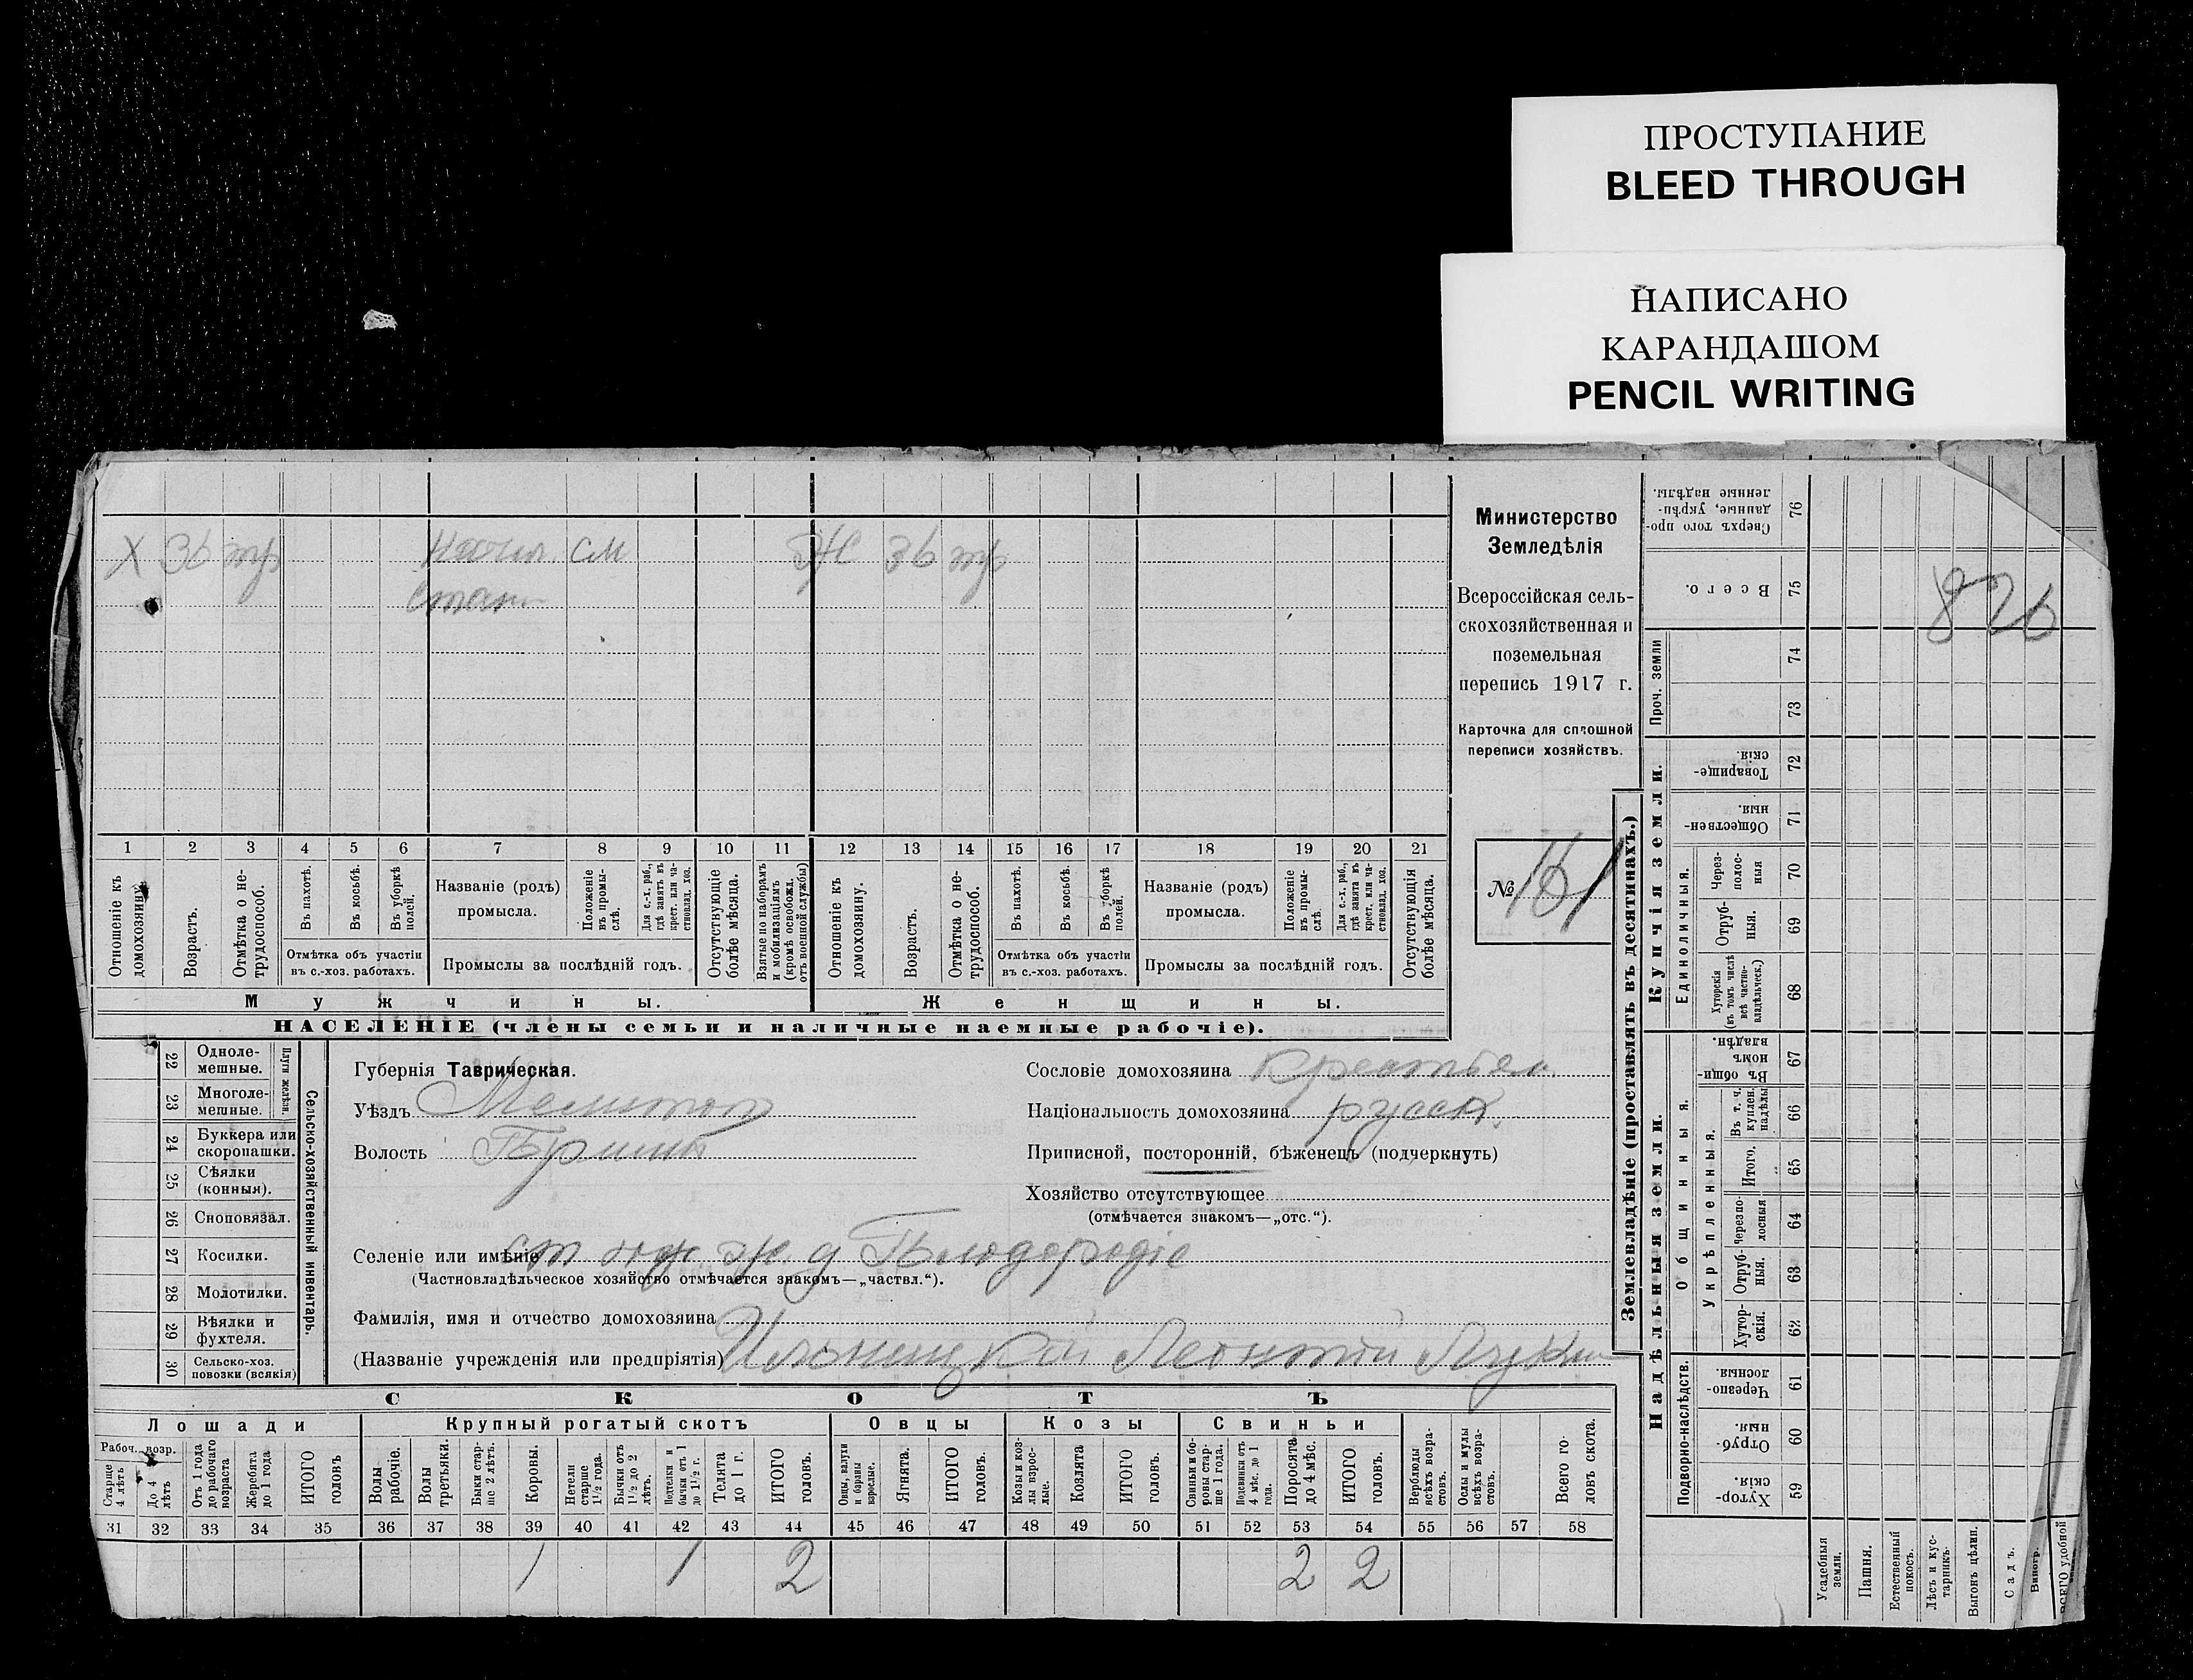 ПРОСТУПАНИЕ
BLEED THROUGH
НАПИСАНО
КАРАНДАШОМ
PENCIL WRITING
Х 36 тр Начал. см Ж 36 тр
стан
Министерство
Земледѣлія
Всероссійская сель-
скохозяйственная и
поземельная
перепись 1917 г.
Карточка для сплошной
переписи хозяйствъ.
№ 161
826
1 2 3 4 5 6 7 8 9 10 11 12 13 14 15 16 17 18 19 20 21
Отношеніе къ домохозяину.
Возрастъ.
Отмѣтка о не-трудоспособ.
Въ пахотѣ.
Въ косьбѣ.
Въ уборкѣ полей.
Отмѣтка объ участіи
въ с.-хоз. работахъ.
Названіе (родъ)
промысла.
Положеніе въ промы-слѣ.
Для с.-х. раб., гдѣ занятъ въ крест. или ча-стновлад. хоз.
Промыслы за послѣдній годъ.
Отсутствующіе болѣе мѣсяца.
Взятые по наборамъ и мобилизаціямъ (кромѣ освобожд. отъ военной службы)
Отношеніе къ домохозяину.
Возрастъ.
Отмѣтка о не-трудоспособ.
Въ пахотѣ.
Въ косьбѣ.
Въ уборкѣ полей.
Отмѣтка объ участіи
въ с.-хоз. работахъ.
Названіе (родъ)
промысла.
Положеніе въ промы-слѣ.
Для с.-х. раб., гдѣ занята въ крест. или ча-стновлад. хоз.
Промыслы за послѣдній годъ.
Отсутствующія болѣе мѣсяца.
Мужчины. Женщины.
НАСЕЛЕНІЕ (члены семьи и наличные наемные рабочіе).
22 Одноле-мешные.
23 Многоле-мешные.
Плуги желѣзн.
24 Буккера или скоропашки.
25 Сѣялки (конныя).
26 Сноповязал.
27 Косилки.
28 Молотилки.
29 Вѣялки и фухтеля.
30 Сельско-хоз. повозки (всякія)
Сельско-хозяйственный инвентарь.
Губернія Таврическая.
Уѣздъ Мелитоп
Волость
Сословіе домохозяина Крестьян.
Національность домохозяина русск.
Приписной, посторонній, бѣженецъ (подчеркнуть)
Хозяйство отсутствующее
(отмѣчается знакомъ—„отс.“).
Селеніе или имѣніе ст юж ж. д
(Частновладѣльческое хозяйство отмѣчается знакомъ—„частвл.“).
Фамилія, имя и отчество домохозяина
(Названіе учрежденія или предпріятія) Леонтій
СКОТЪ
Лошади Крупный рогатый скотъ Овцы Козы Свиньи
Рабоч. возр.
Старше 4 лѣтъ
До 4 лѣтъ
Отъ 1 года до рабочаго возраста
Жеребята до 1 года
ИТОГО головъ
Волы рабочіе.
Волы третьяки.
Быки стар-ше 2 лѣтъ.
Коровы.
Нетели старше 1½ года.
Бычки отъ 1½ до 2 лѣтъ.
Подтелки и бычки отъ 1 до 1½ г.
Телята до 1 г.
ИТОГО головъ.
Овцы, валухи и бараны взрослые.
Ягнята.
ИТОГО головъ.
Козы и коз-лы взрос-лые.
Козлята
ИТОГО головъ.
Свиньи и бо-ровы стар-ше 1 года.
Подсвинки отъ 4 мѣс. до 1 года.
Поросята до 4 мѣс.
ИТОГО головъ.
Верблюды всѣхъ возра-стовъ.
Ослы и мулы всѣхъ возра-стовъ.
Всего го-ловъ скота.
31 32 33 34 35 36 37 38 39 40 41 42 43 44 45 46 47 48 49 50 51 52 53 54 55 56 57 58
1 1 2 2 2
Землевладѣніе (проставлять въ десятинахъ.)
Надѣльныя земли. Купчія земли.
Подворно-наслѣдств.
Общинныя.
Укрѣпленныя.
Единоличныя.
Проч. земли
Хутор-скія. 59
Отруб-ныя. 60
Черезпо-лосныя. 61
Хутор-скія. 62
Отруб-ныя. 63
Черезпо-лосныя 64
Итого. 65
Въ т. ч. куплен. надѣлы 66
Въ общин-номъ владѣн. 67
Хуторскія (въ томъ числѣ всѣ частно-владѣльческ.) 68
Отруб-ныя. 69
Через-полос-ныя 70
Обществен-ныя. 71
Товарище-скія. 72
73
74
Всего. 75
Сверхъ того про-данные, укрѣп-ленные надѣлы. 76
Усадебныя земли.
Пашня.
Естественный покосъ.
Лѣсъ и кус-тарникъ.
Выгонъ цѣлин.
Садъ.
Виногр.
ВСЕГО удобной